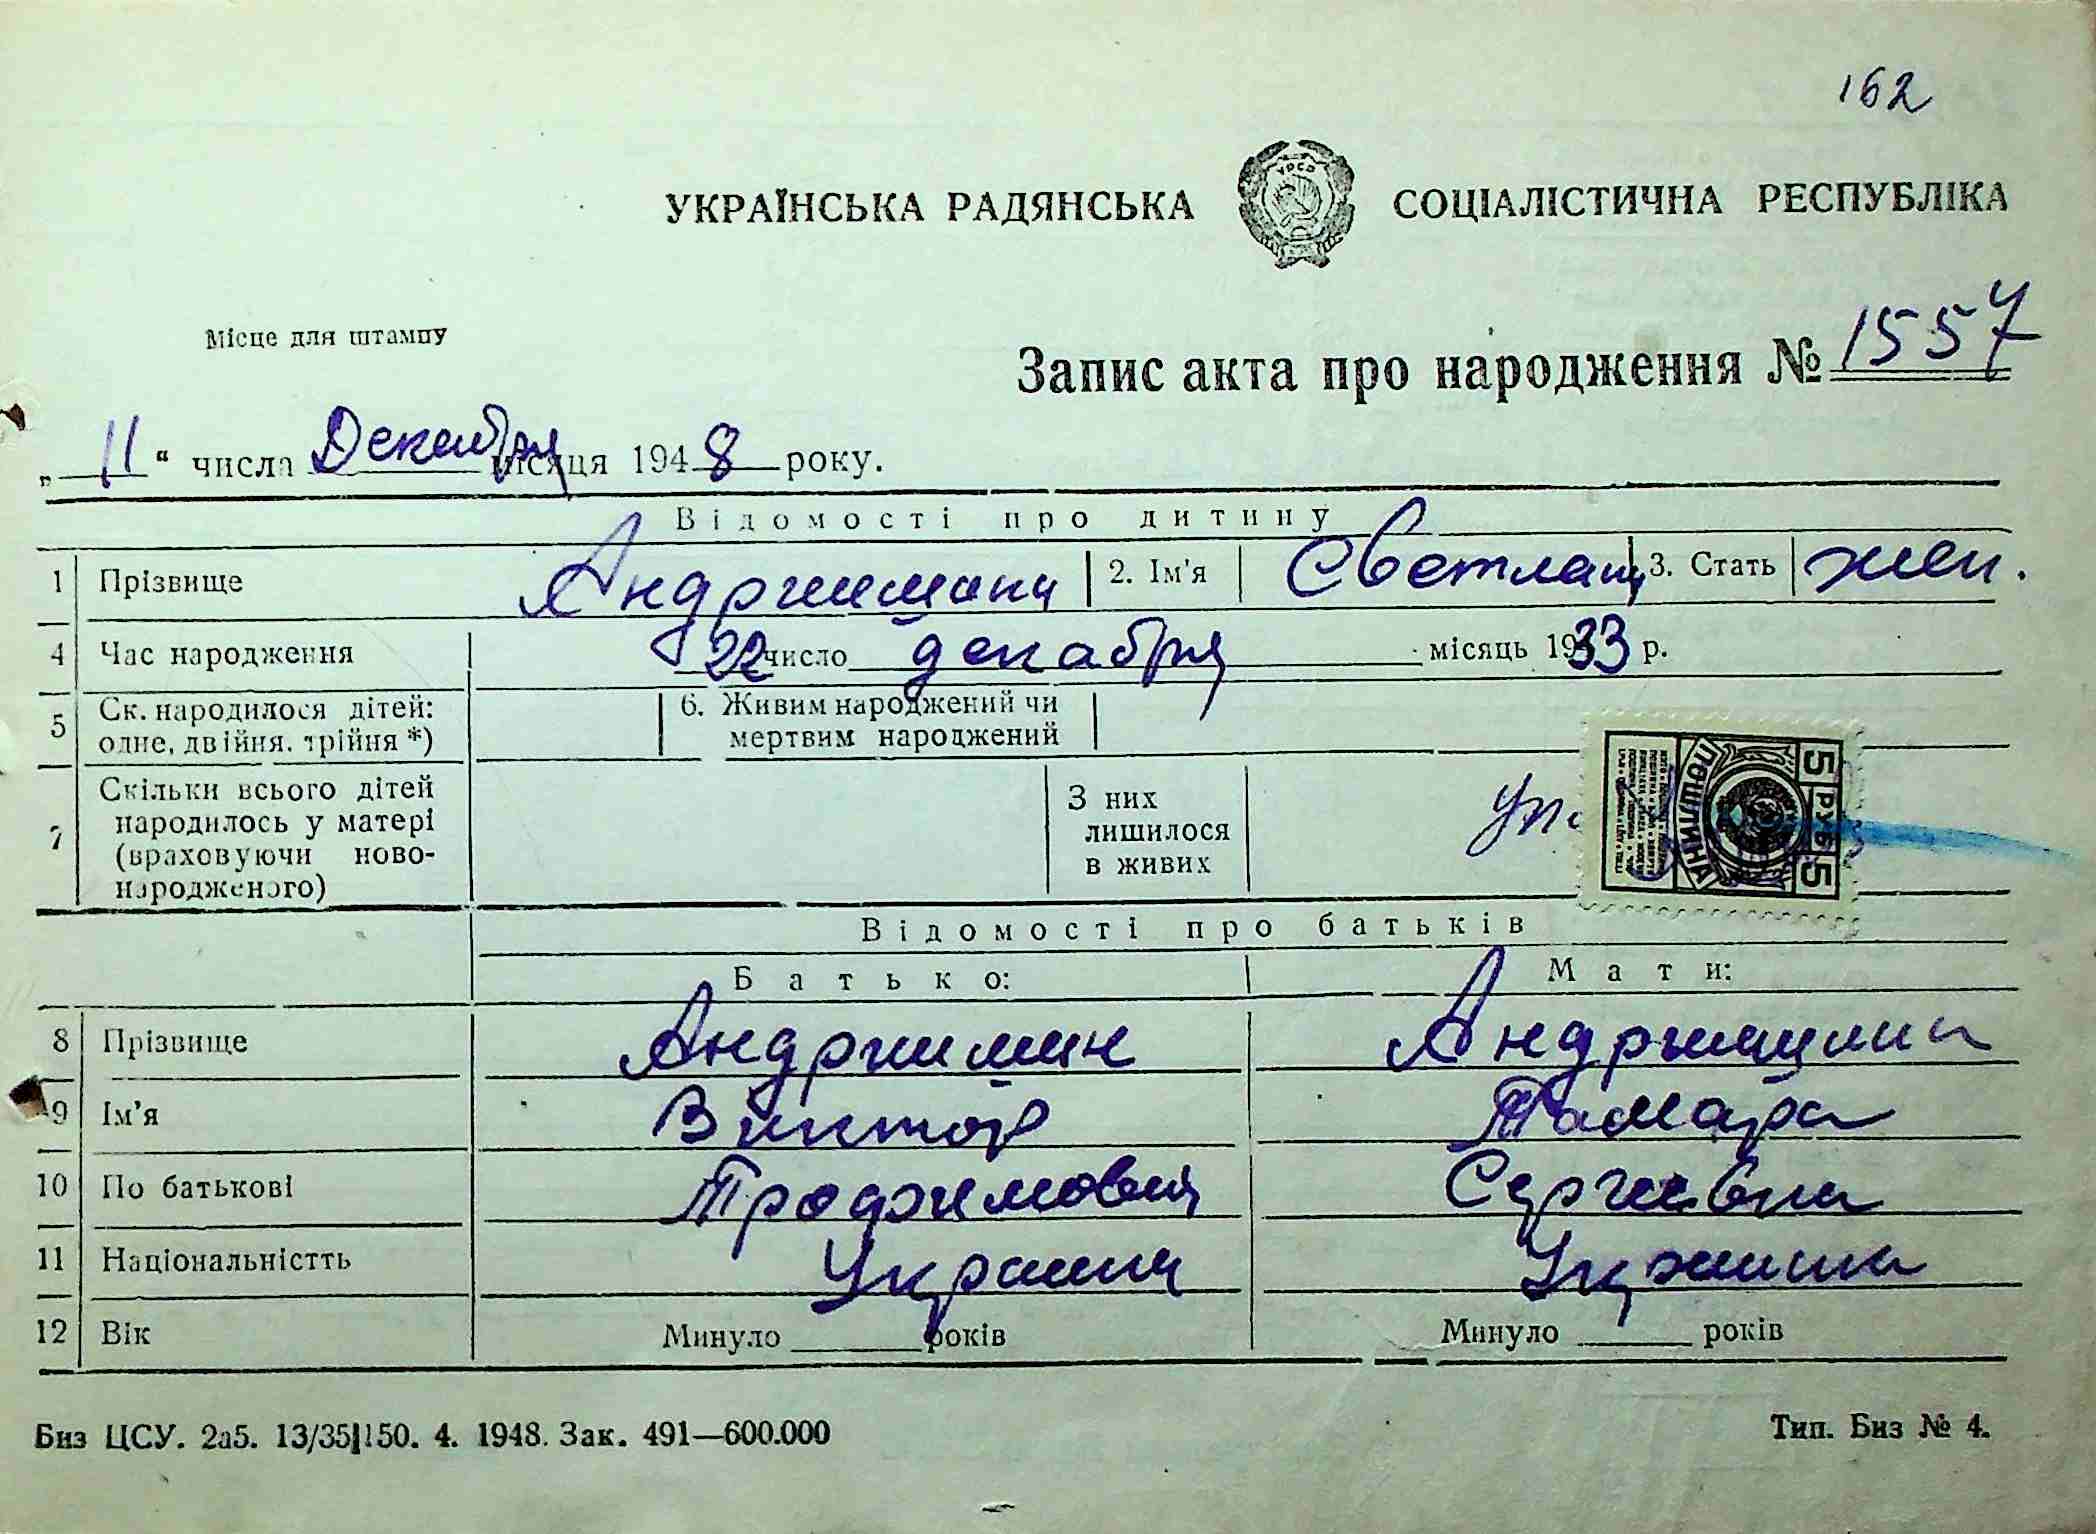 162
УКРАЇНСЬКА РАДЯНСЬКА СОЦІАЛІСТИЧНА РЕСПУБЛІКА
УРСР
Місце для штампу
Запис акта про народження № 1557
„ 11 “ числа Декабря місяця 1948 року.
Відомості про дитину
1 Прізвище 2. Ім'я Светлана 3. Стать жен.
4 Час народження 22 число декабря місяць 1933 р.
5 Ск. народилося дітей: одне, двійня, трійня *) 6. Живим народжений чи мертвим народжений
7 Скільки всього дітей народилось у матері (враховуючи новонародженого) З них лишилося в живих
5 РУБ 5
ПОШЛИНА
Відомості про батьків
Батько: Мати:
8 Прізвище
9 Ім’я Виктор Тамара
10 По батькові Трофимович Сергеевна
11 Національністть Украинец Украинка
12 Вік Минуло років Минуло років
Биз ЦСУ. 2а5. 13/35|150. 4. 1948. Зак. 491—600.000 Тип. Биз № 4.